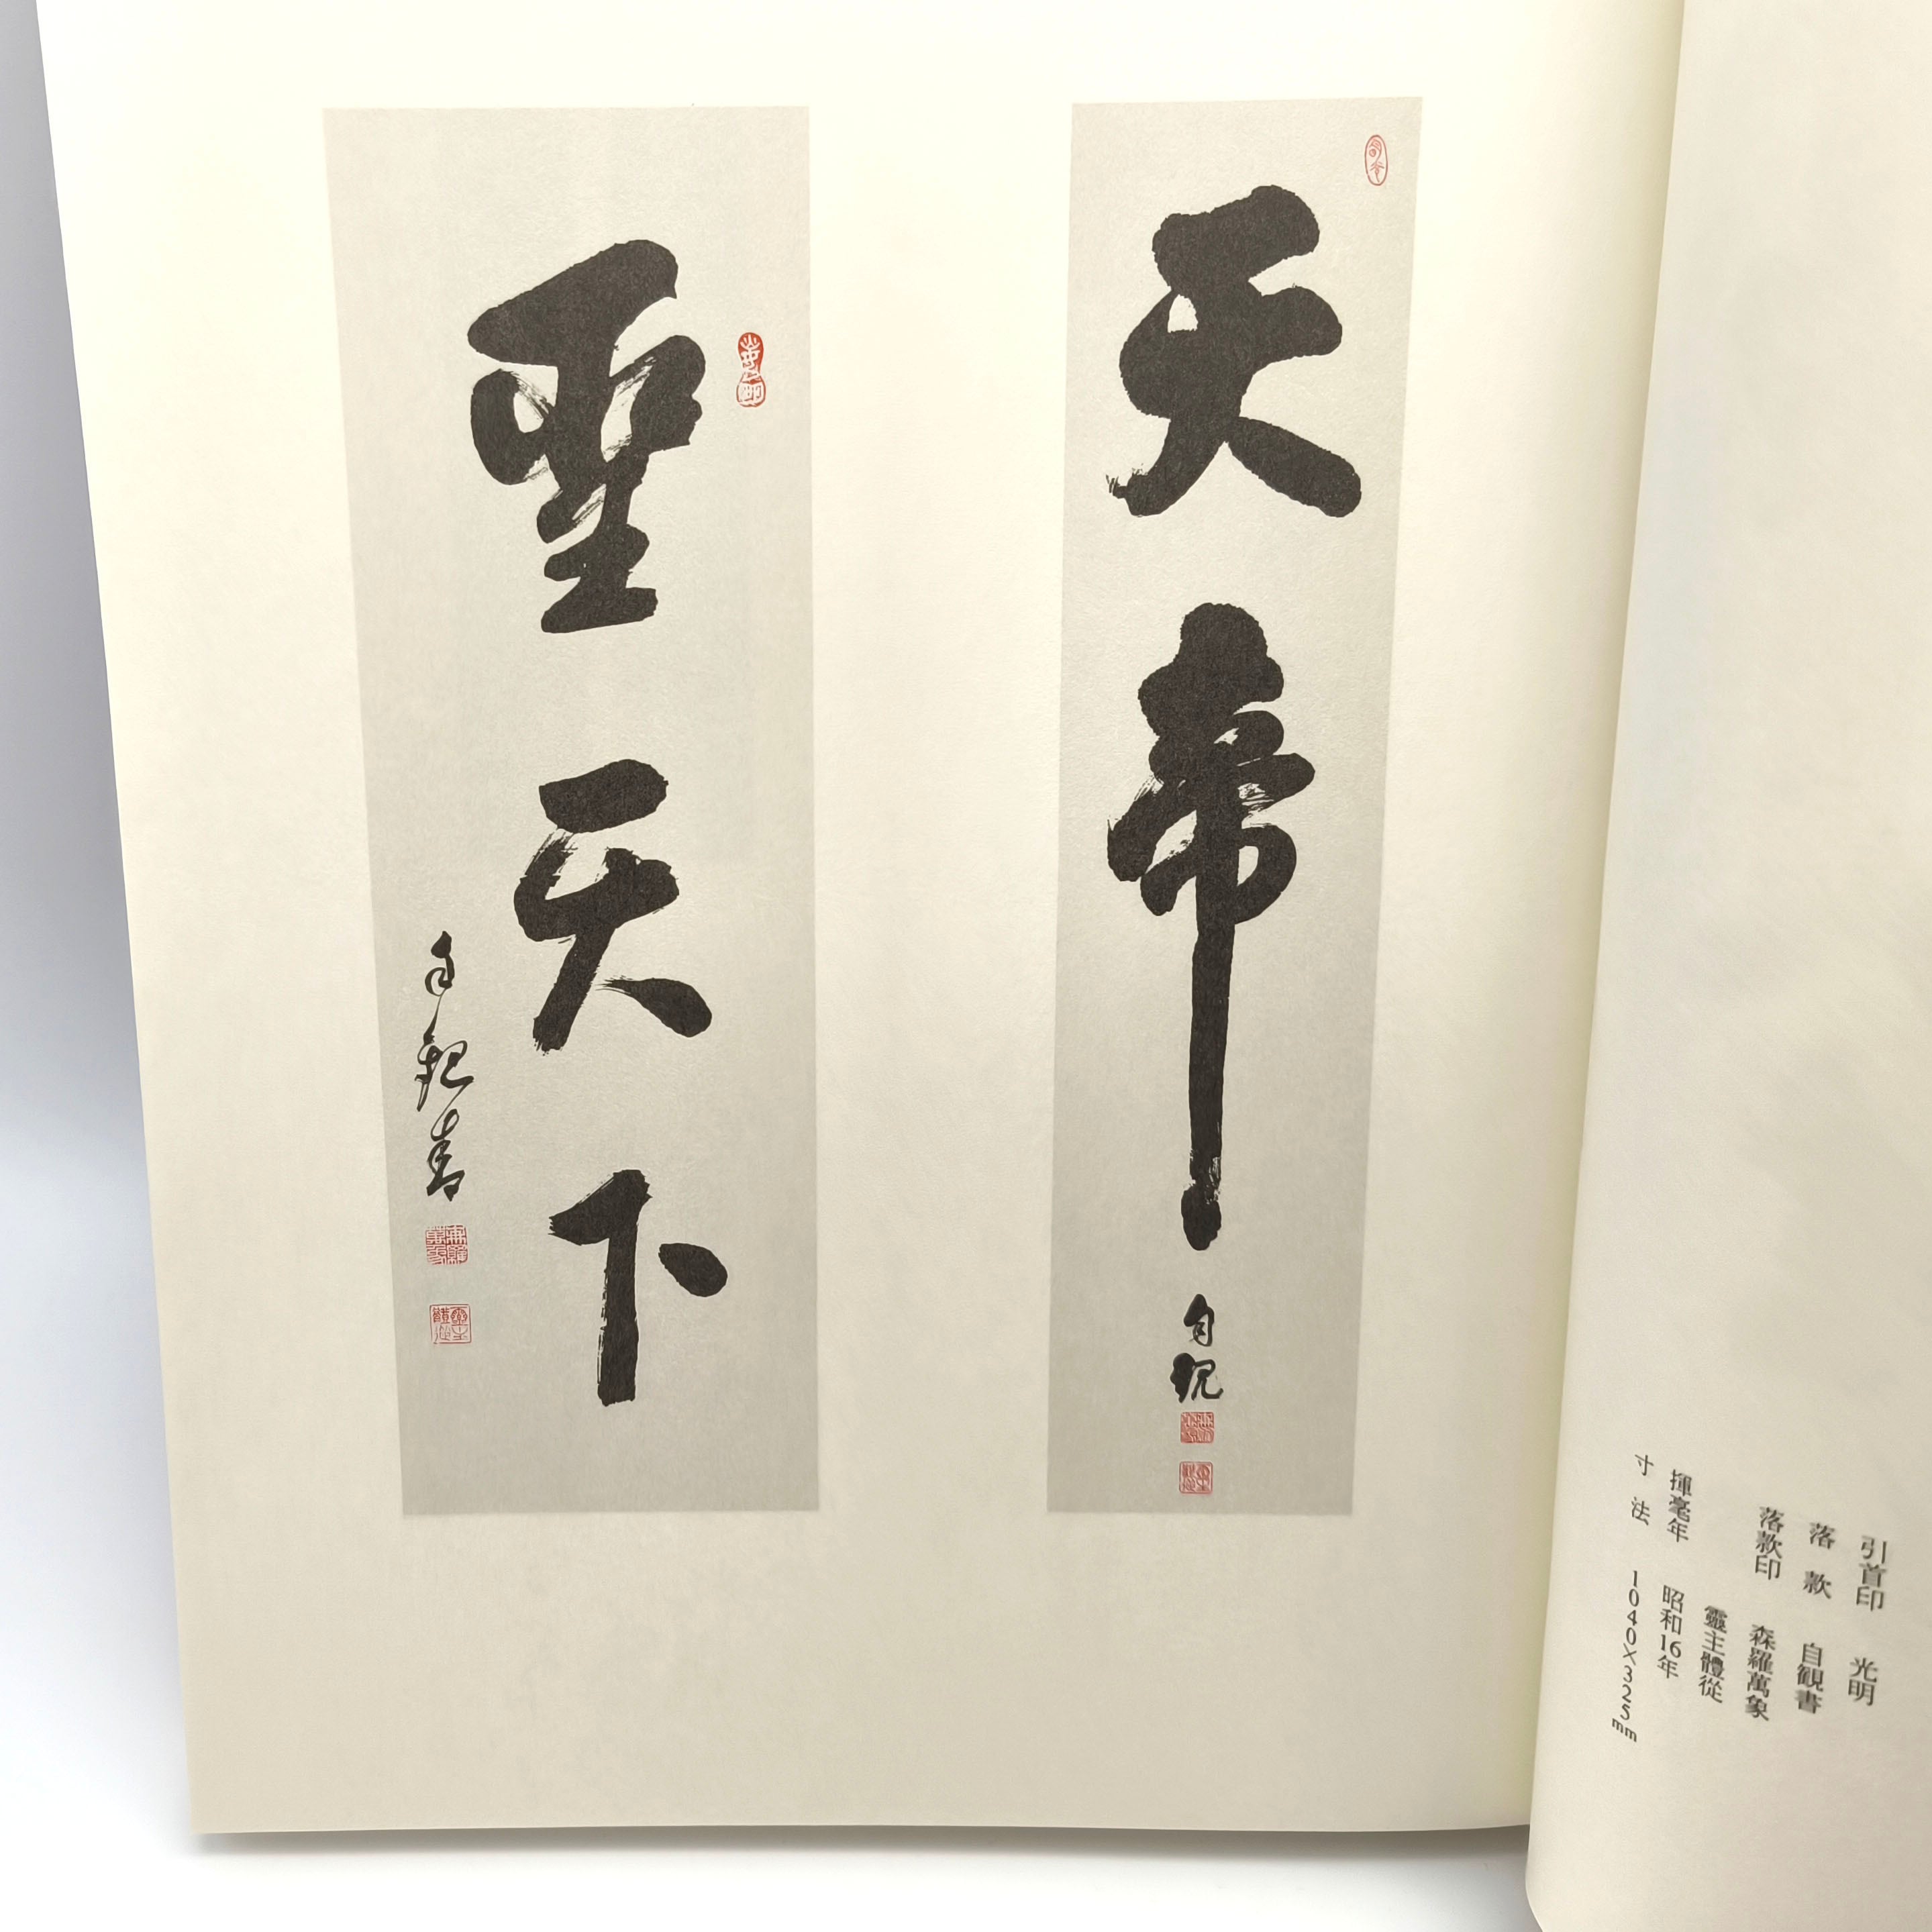 引首印　光明
落款　自観書
落款印　森羅萬象
靈主體從
揮毫年　昭和16年
寸法　1040×325mm
天帝
自観
聖天下
自観書